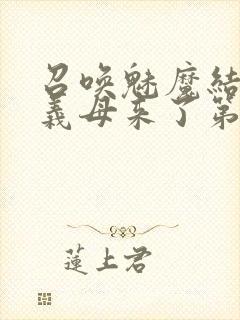 召唤魅魔結
義母来了第
蓮上君